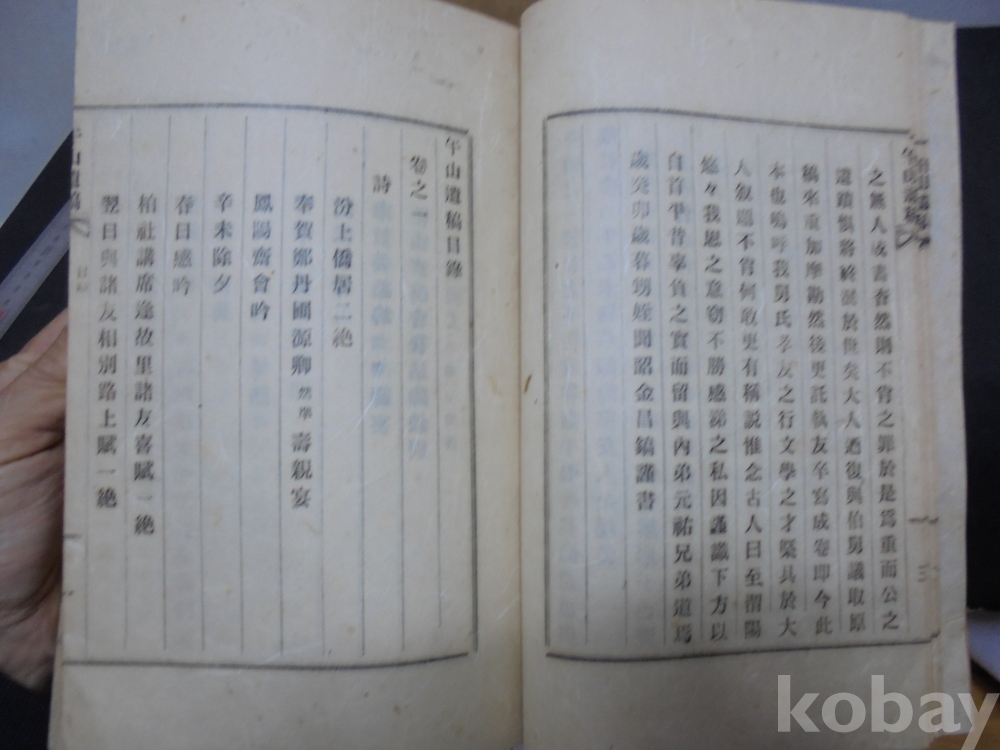 之無人或畜沓然則不肖之罪於是爲重而公之
遺蹟懼將終泯於世矣大人迺復與伯舅議取原
稿來重加摩勘然後更託執友卒寫成卷卽今此
本也嗚呼我舅氏孝友之行文學之才槩具於大
人叙題不肖何敢更有稱說惟念古人曰至渭陽
悠々我思之意窃不勝感涕之私因謹識下方以
自首平昔辜負之實而留與內弟元祐兄弟道焉
歲癸卯歲暮甥姪聞韶金昌鎬謹書
三
午山遺稿目錄
卷之一
詩
汾上僑居二絶
奉賀鄭丹圃源卿 然準 壽親宴
鳳陽齋會吟
辛未除夕
春日感吟
柏社講席逢故里諸友喜賦一絶
翌日與諸友相別路上賦一絶
午山遺稿
目錄
kobay